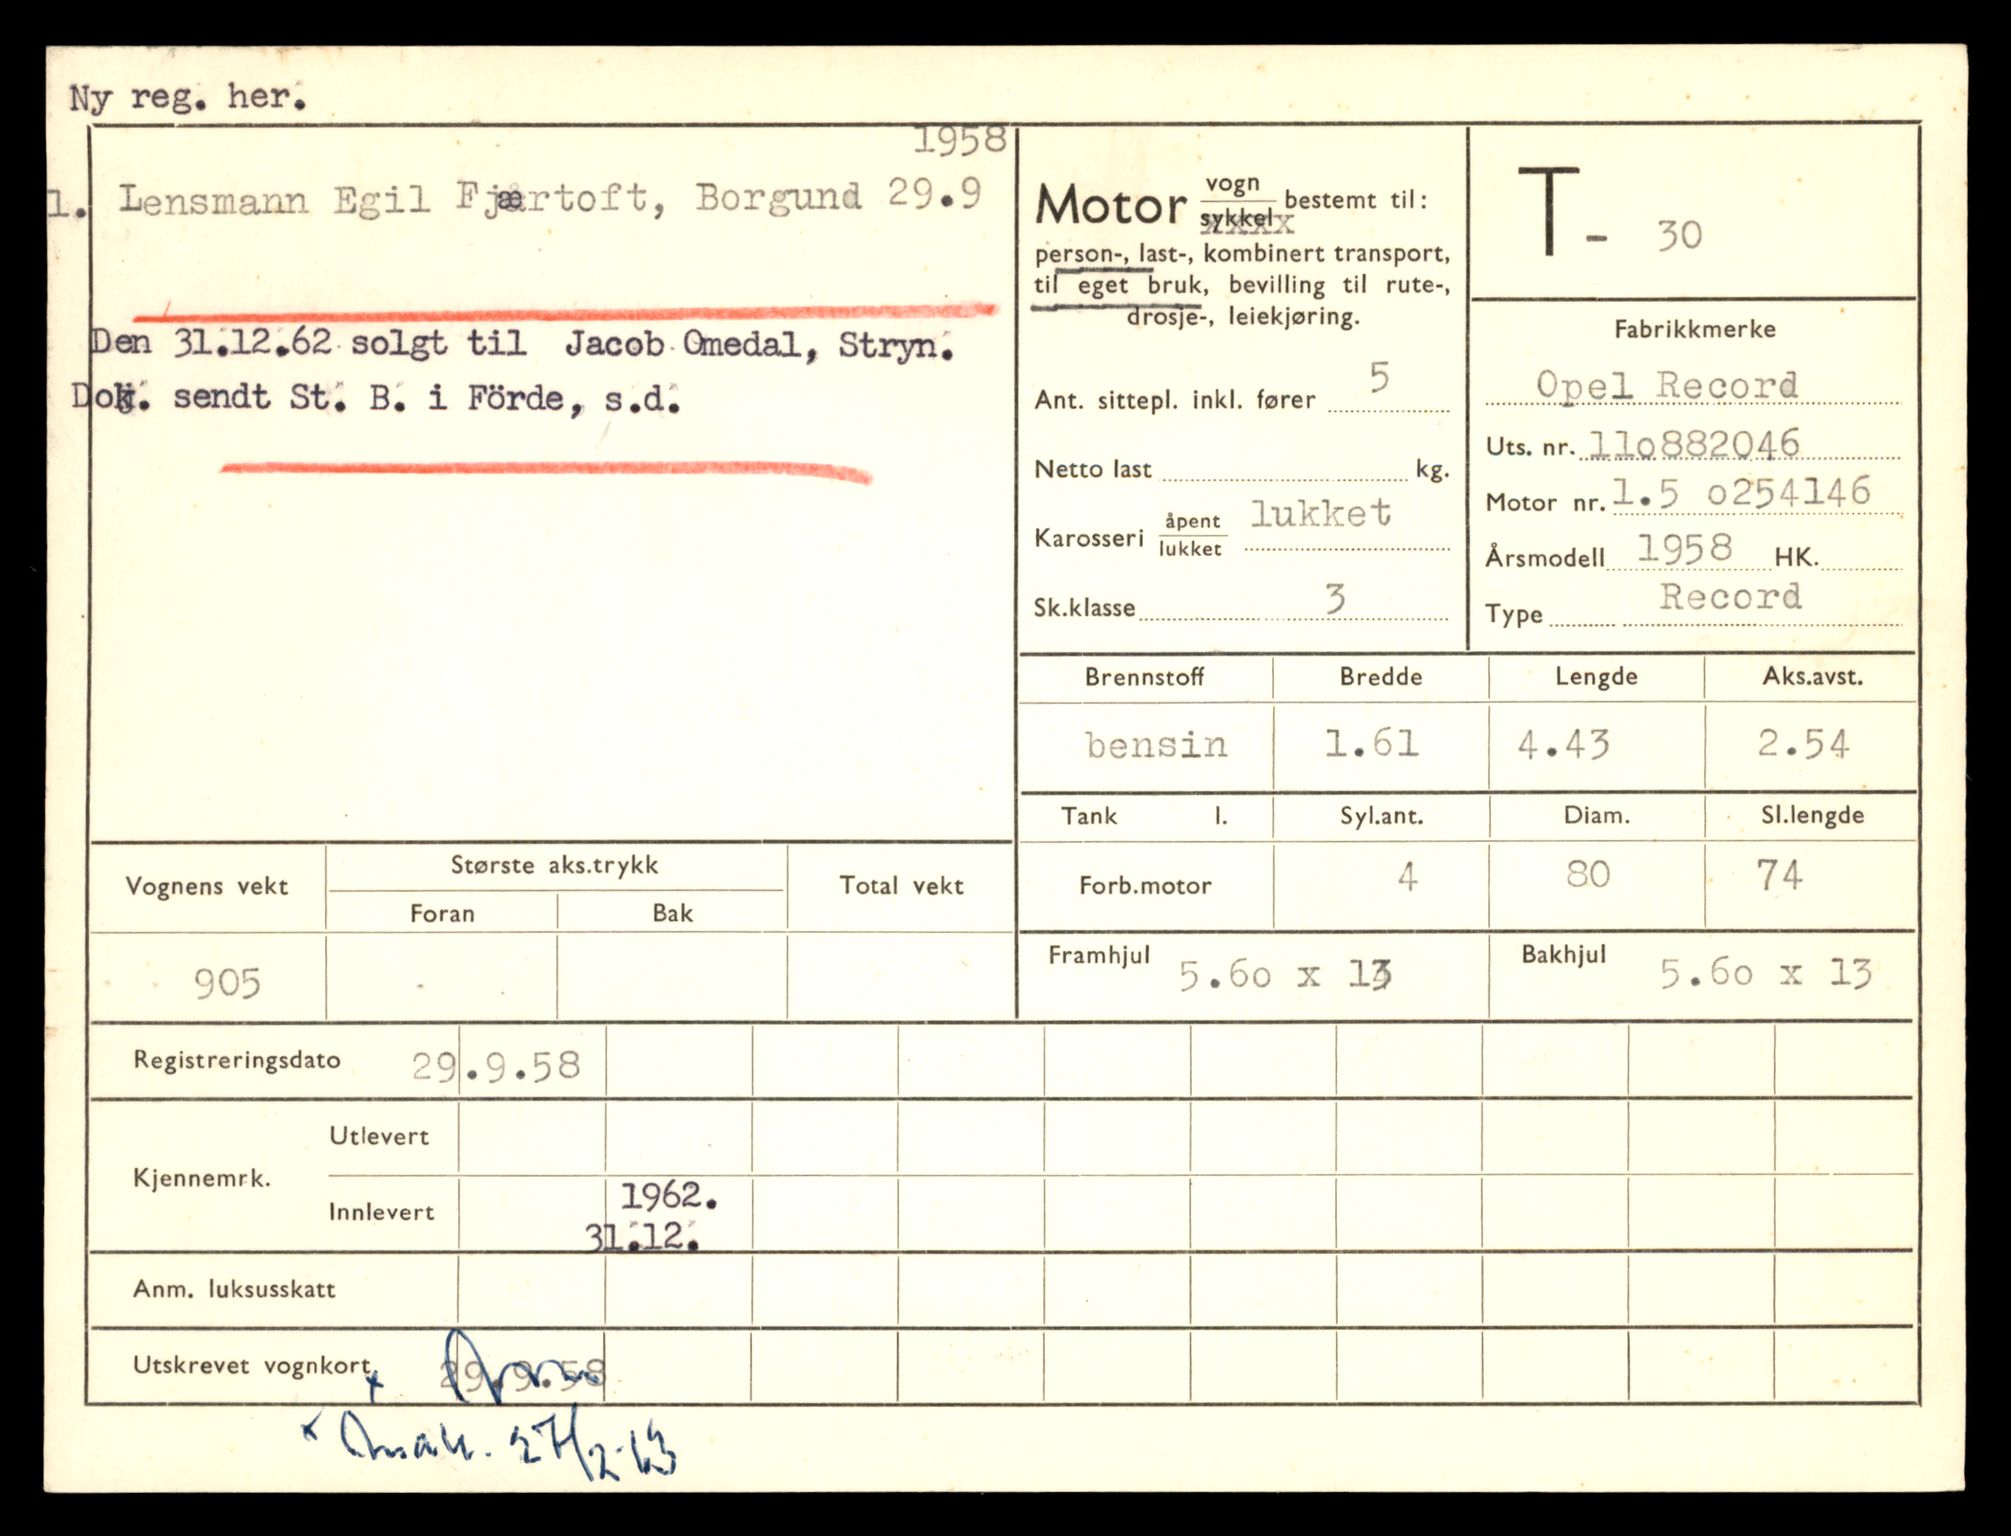 Ny reg. her.
1958
1. Lensmann Egil Fjærtoft, Borgund 29.9
Den 31.12.62 solgt til Jacob Omedal, Stryn.
Dok. sendt St. B. i Förde, s.d.
Motor vogn bestemt til:
sykkel xxxx
person-, last-, kombinert transport,
til eget bruk, bevilling til rute-,
drosje-, leiekjøring.
Ant. sittepl. inkl. fører 5
Netto last kg.
Karosseri åpent lukket
lukket
Sk.klasse 3
T- 30
Fabrikkmerke
Opel Record
Uts. nr. 11o882046
Motor nr. 1.5 o254146
Årsmodell 1958 HK.
Type Record
Brennstoff Bredde Lengde Aks.avst.
bensin 1.61 4.43 2.54
Tank l. Syl.ant. Diam. Sl.lengde
Forb.motor 4 80 74
Framhjul 5.6o x 13 Bakhjul 5.6o x 13
Vognens vekt Største aks.trykk Total vekt
Foran Bak
905
Registreringsdato 29.9.58
Kjennemrk. Utlevert
Innlevert 1962.
31.12.
Anm. luksusskatt
Utskrevet vognkort 29.9.58
x 27/2-63